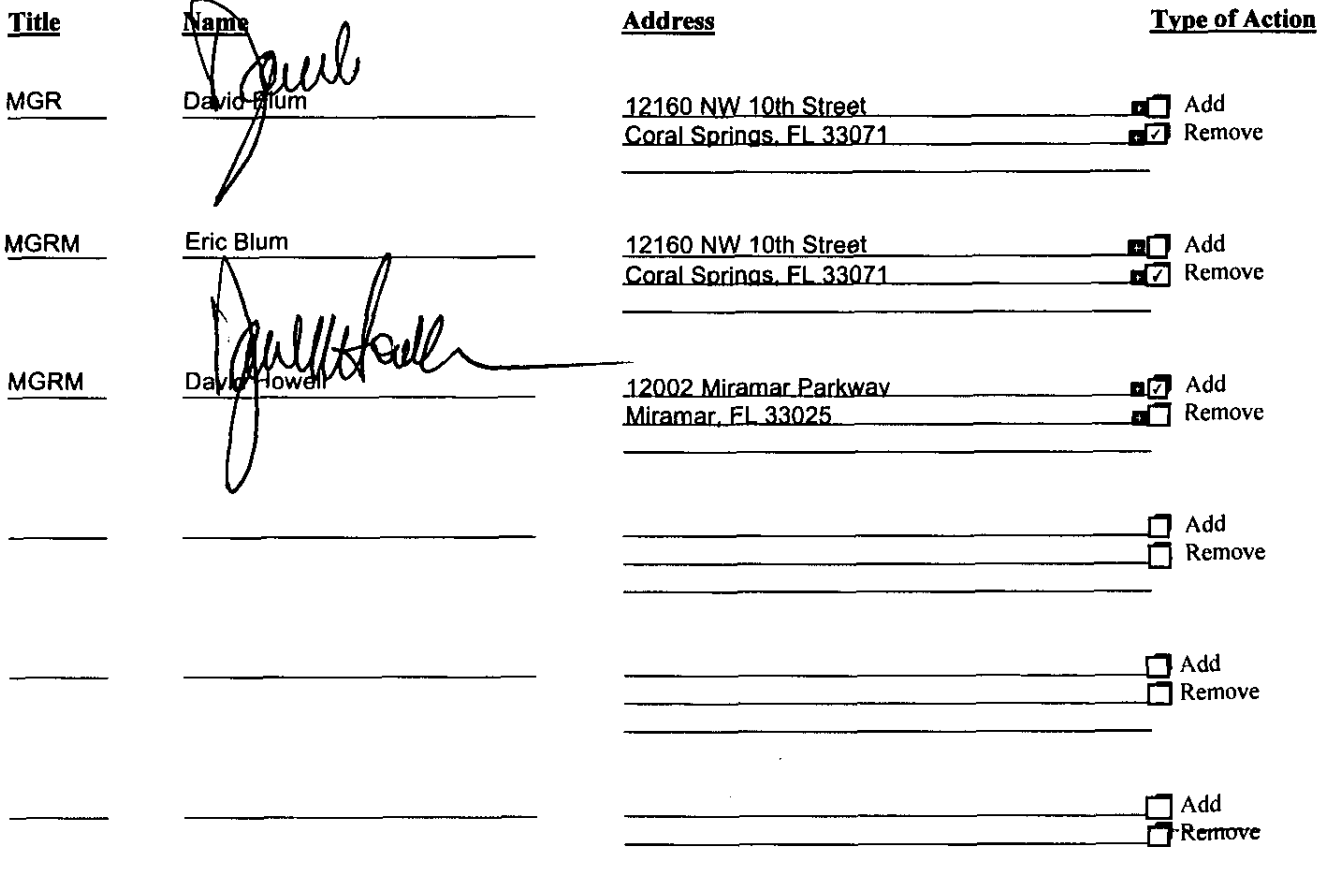 Title Name Address Type of Action
MGR David Blum 12160 NW 10th Street Add
Coral Springs, FL 33071 ✓ Remove
MGRM Eric Blum 12160 NW 10th Street Add
Coral Springs, FL 33071 ✓ Remove
MGRM David Howell 12002 Miramar Parkway ✓ Add
Miramar, FL 33025 Remove
Add
Remove
Add
Remove
Add
Remove